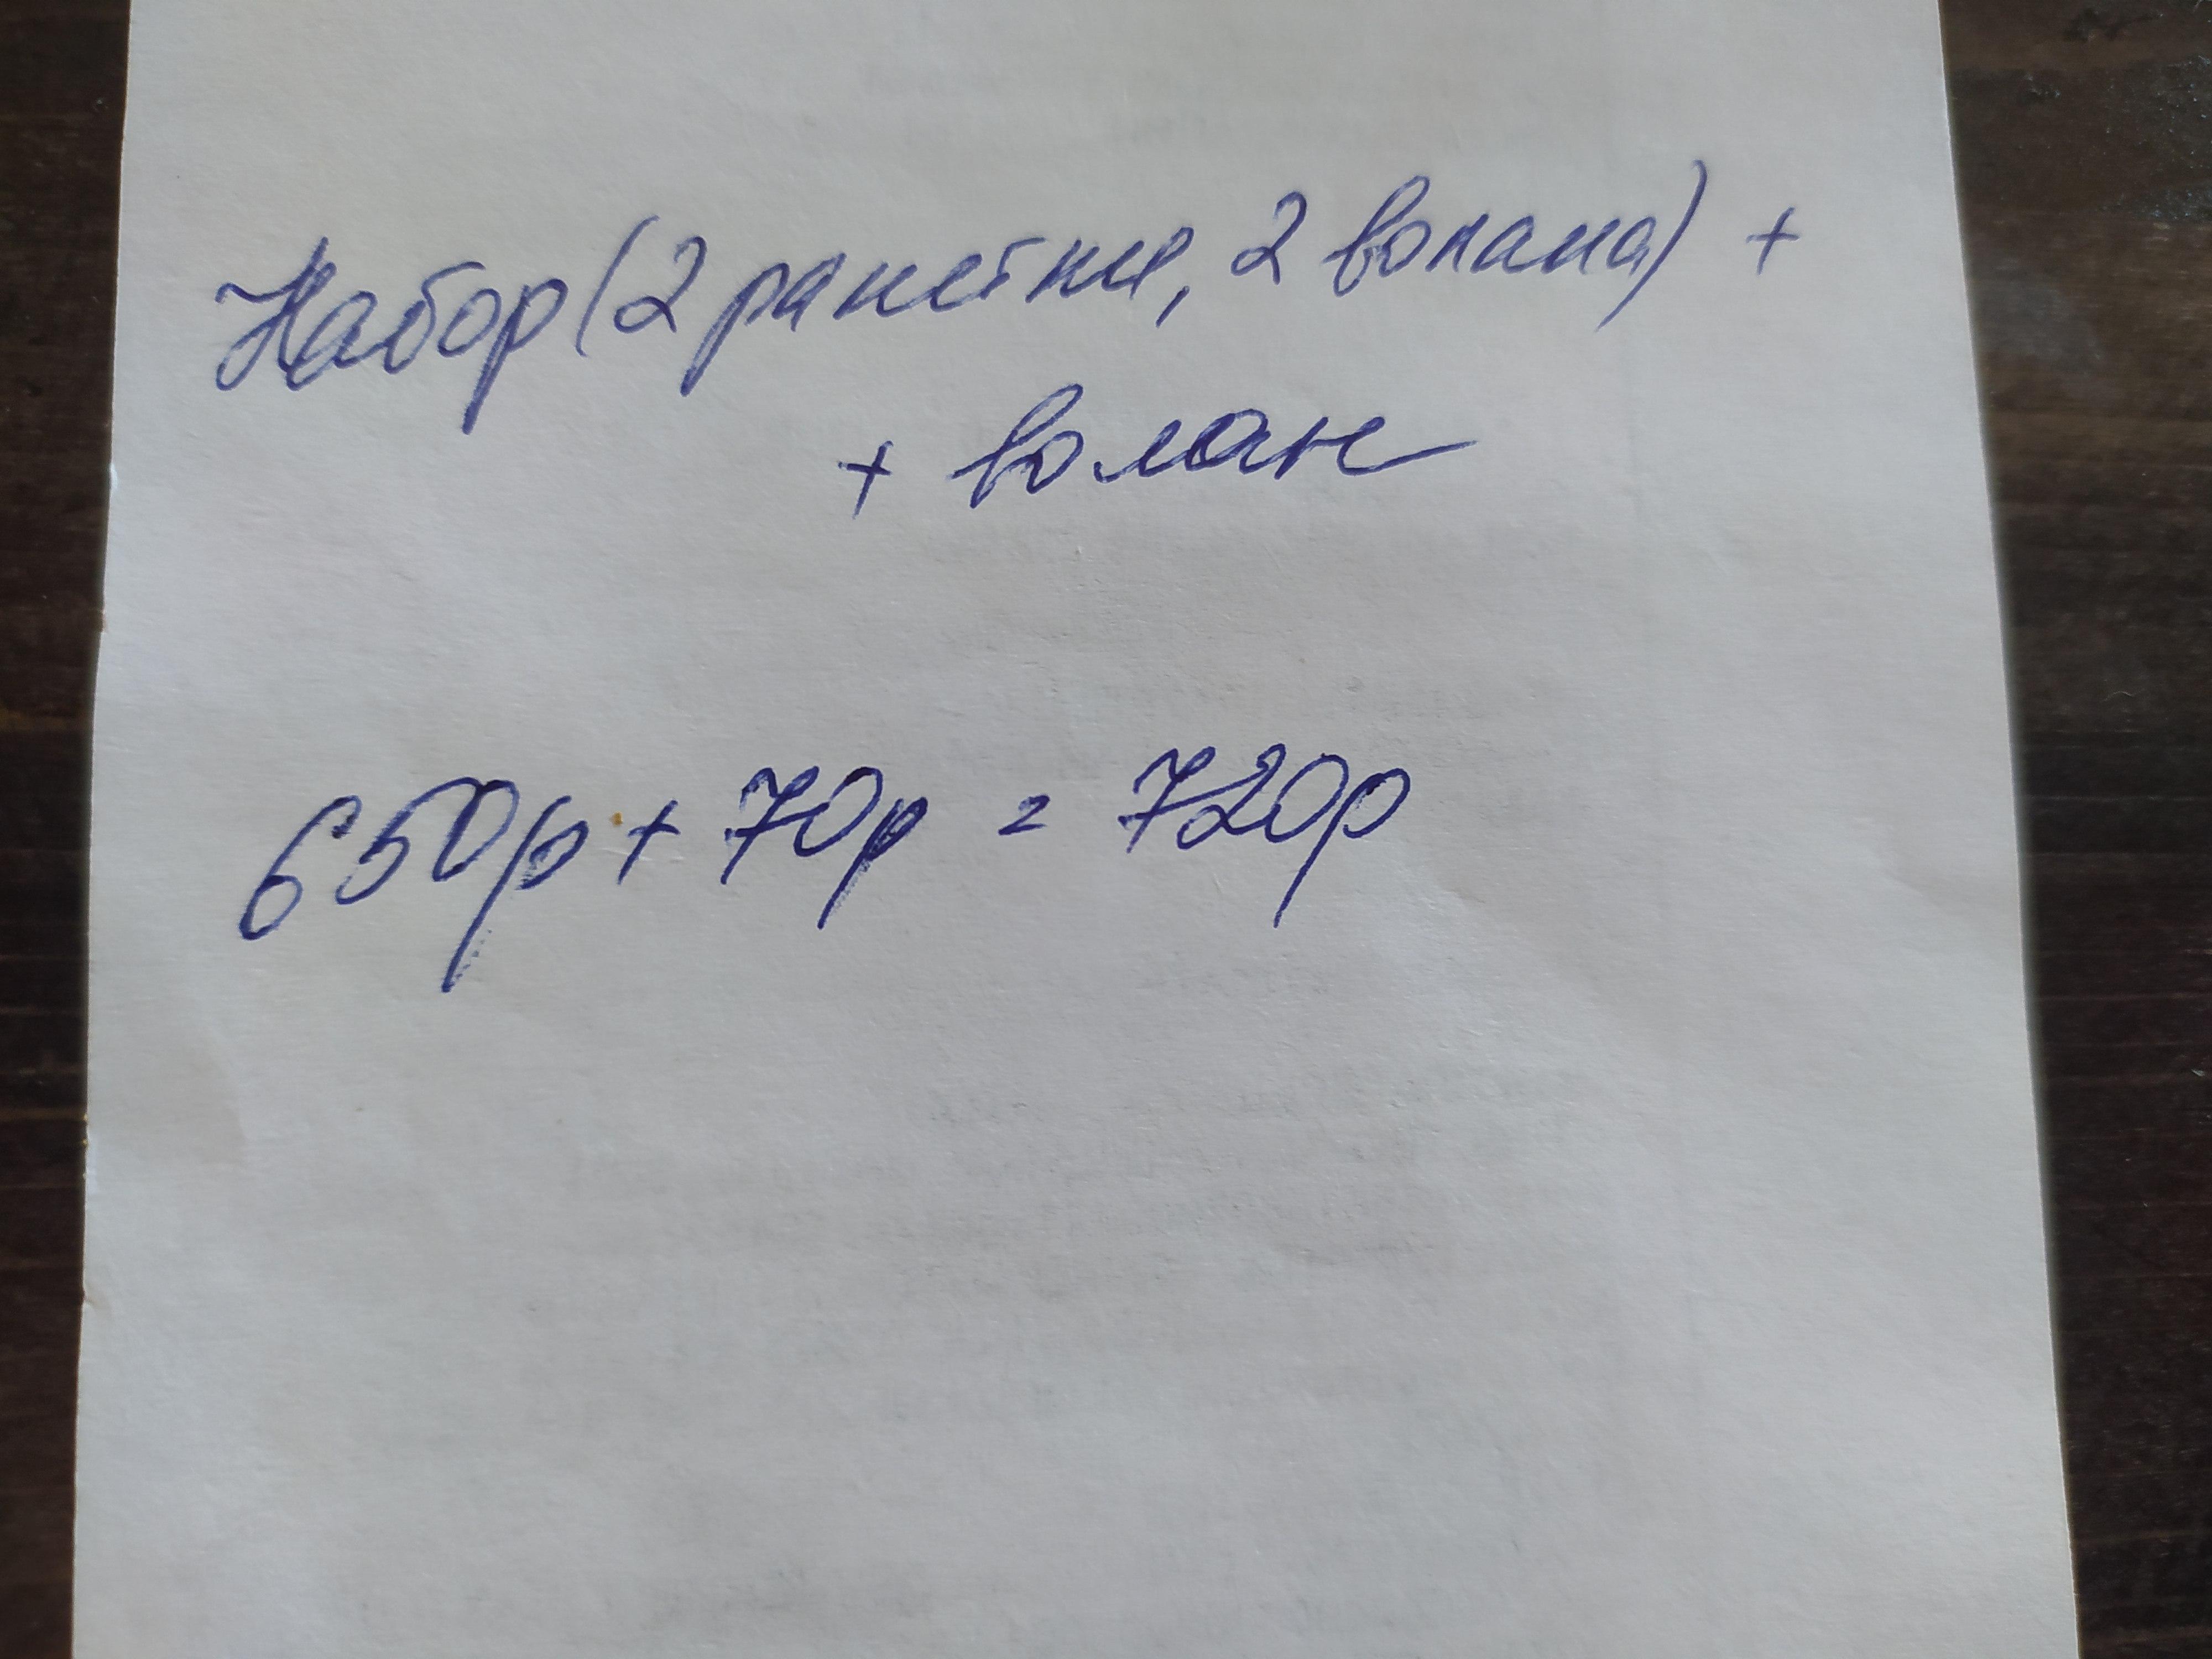 Набор (2 ракетки, 2 волана) +
+ волан
650р + 70р = 720р